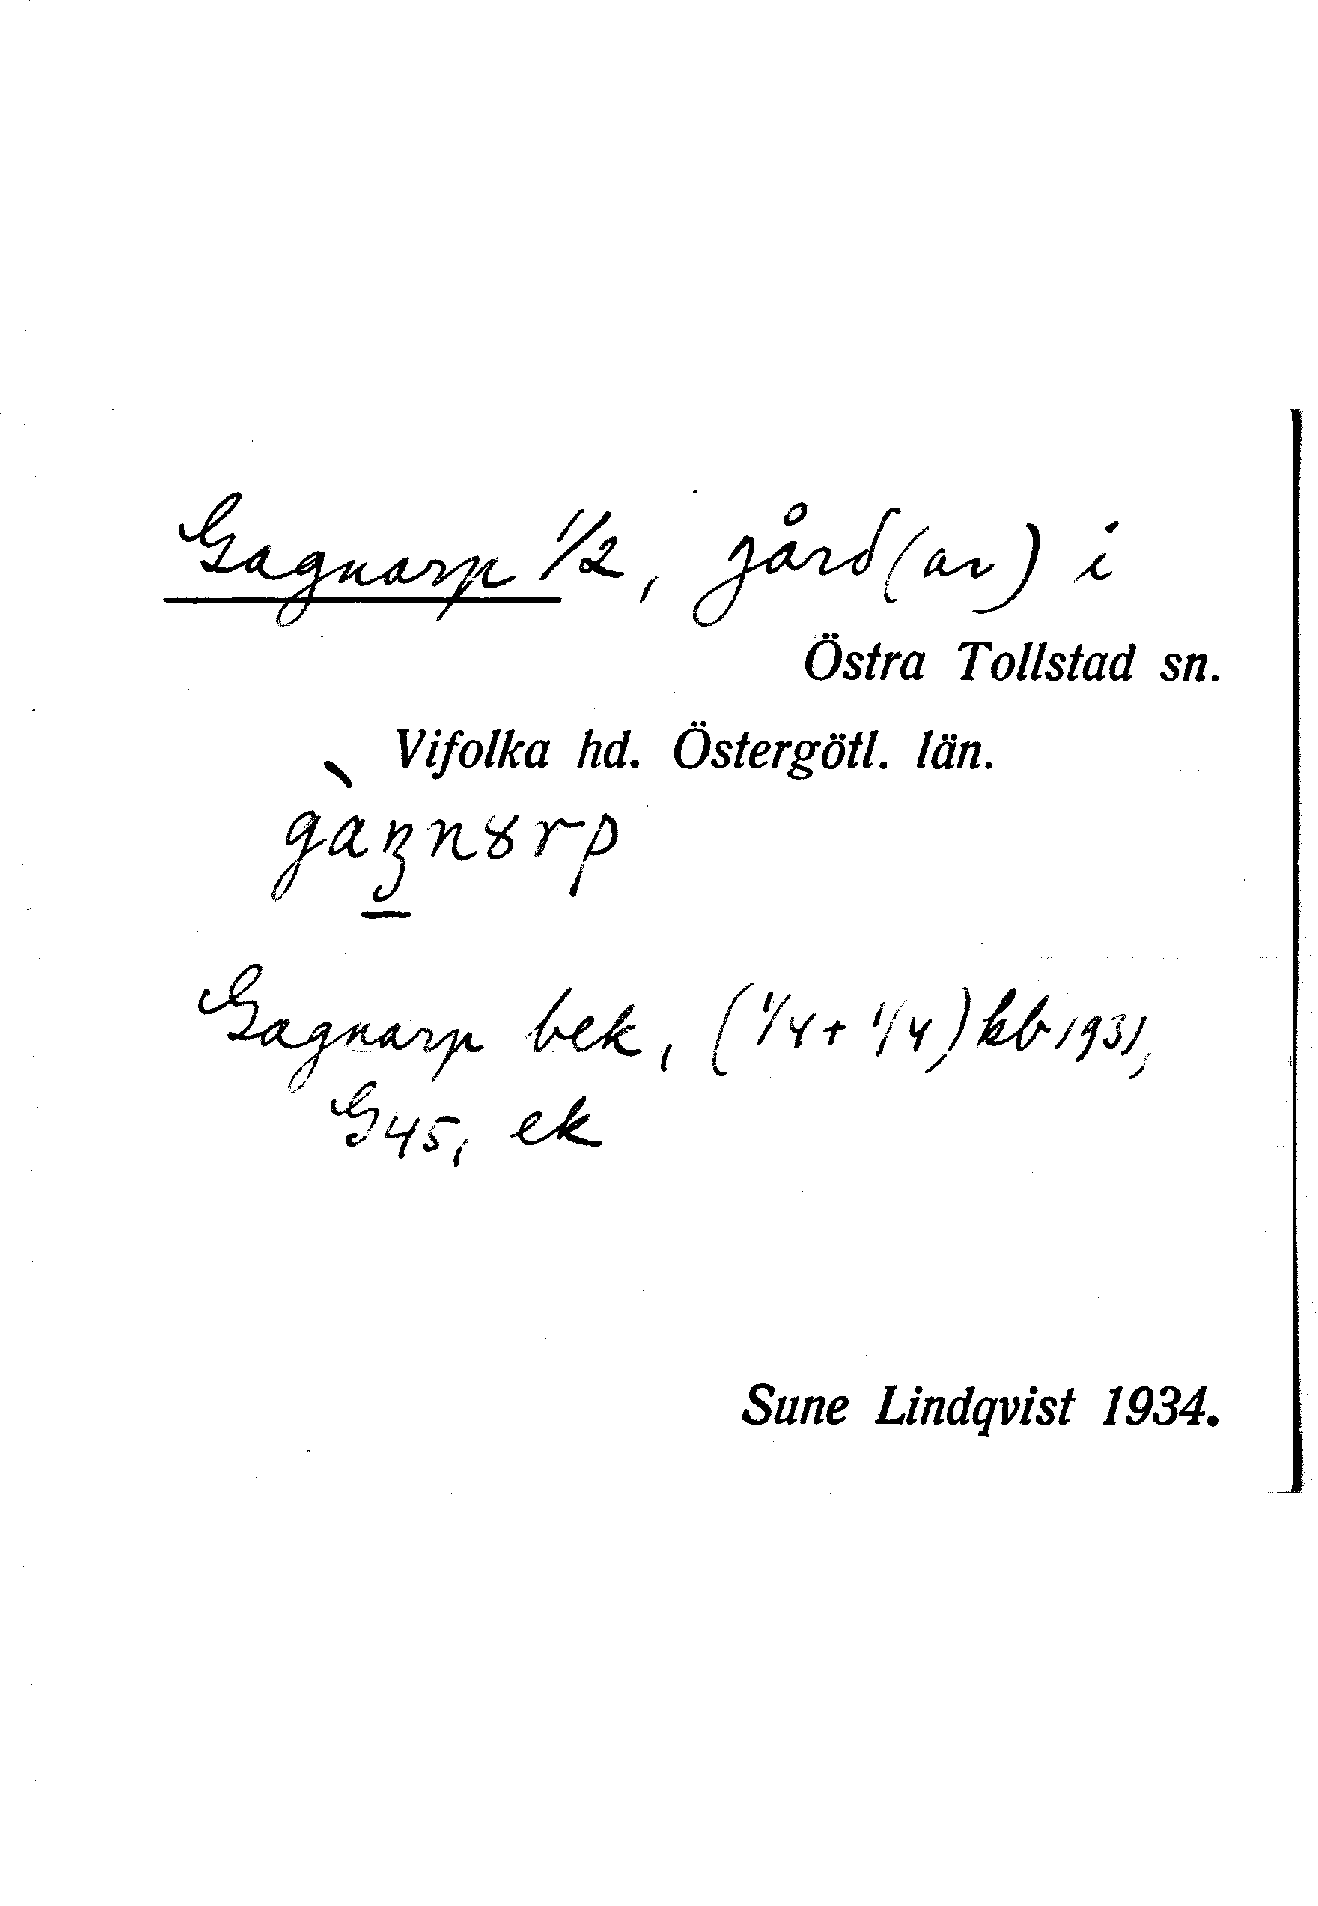 Gagnarp 1/2, gård(ar) i
Östra Tollstad sn.
Vifolka hd. Östergötl. län.
Gagnarp bek, (1/4 + 1/4) kb 1931,
G45, ek
Sune Lindqvist 1934.